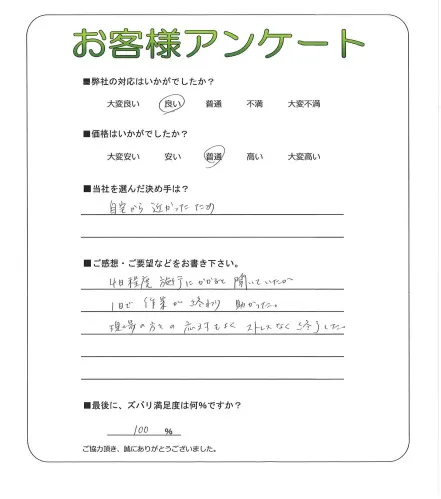 お客様アンケート
■弊社の対応はいかがでしたか？
大変良い 良い 普通 不満 大変不満
■価格はいかがでしたか？
大変安い 安い 普通 高い 大変高い
■当社を選んだ決め手は？
自宅から近かったため
■ご感想・ご要望などをお書き下さい。
4日程度 施行にかかると聞いていたが
1日で 作業が終わり 助かった。
現場の方との 応対もよく ストレスなく 終了した。
■最後に、ズバリ満足度は何％ですか？
100 ％
ご協力頂き、誠にありがとうございました。